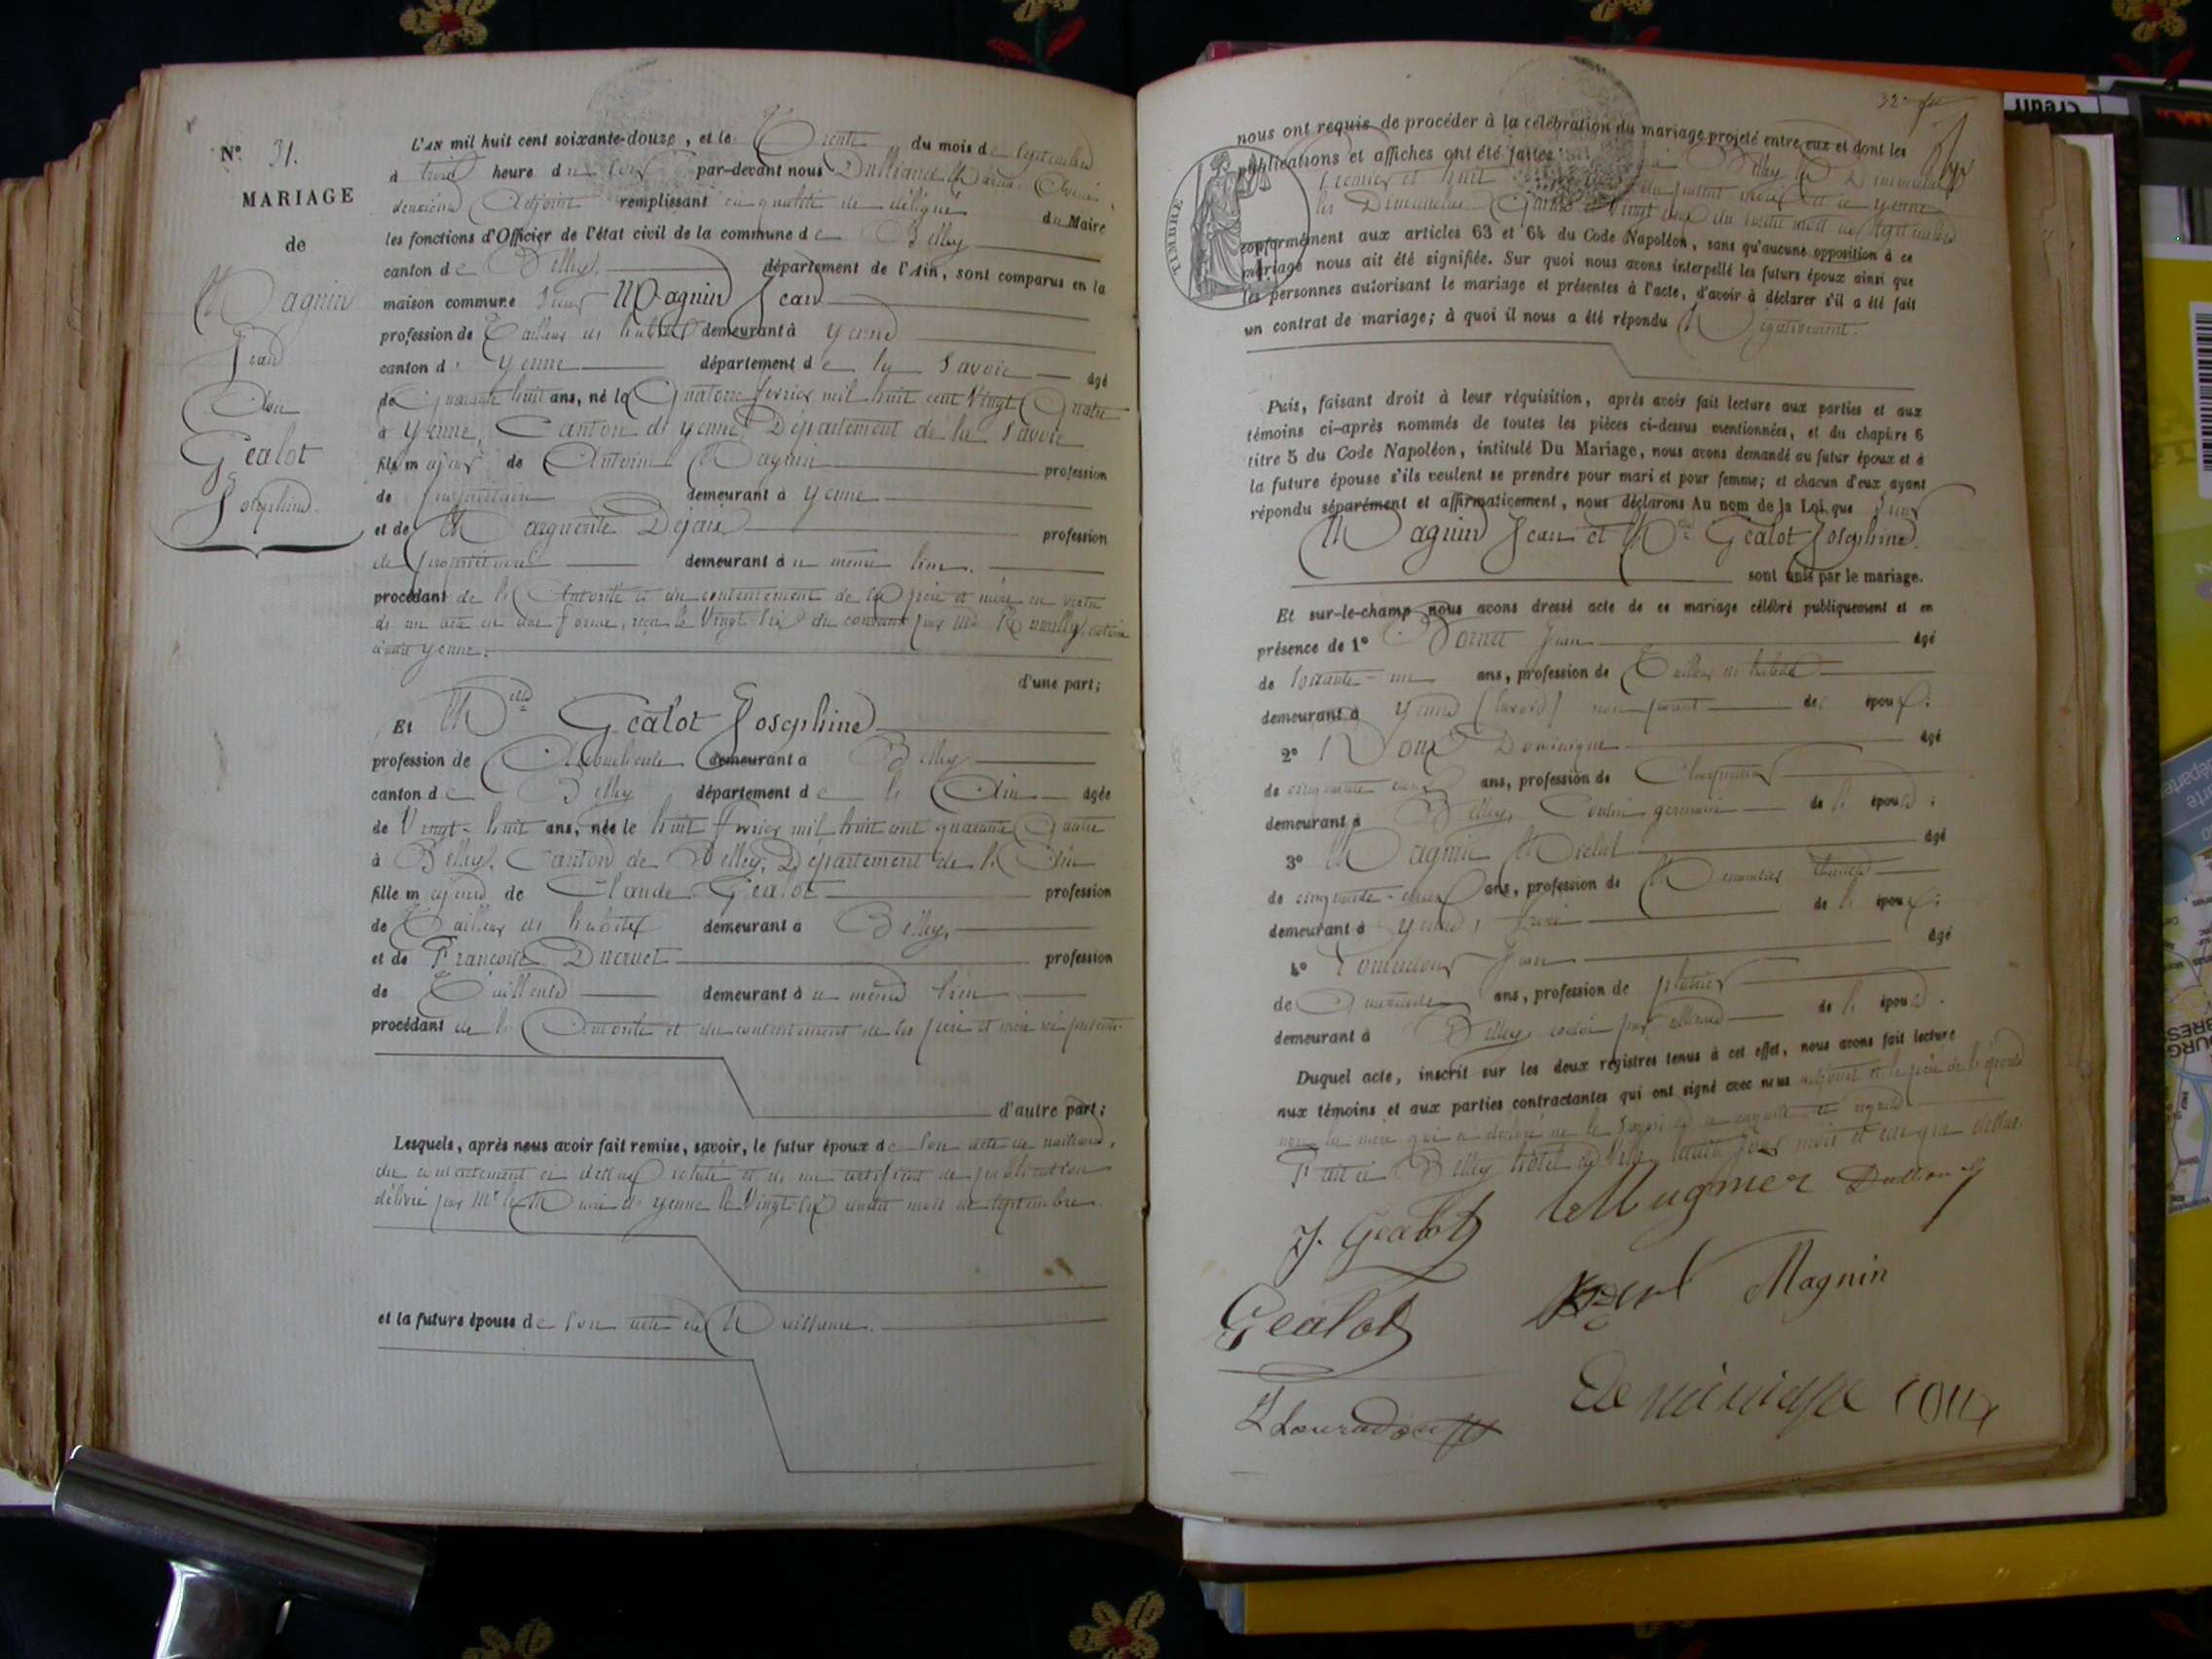 N° 31.
MARIAGE
de
Magnin
Jean
Avec
Gealot
Josephine.
L'AN mil huit cent soixante-douze, et le Trente du mois de Septembre
à trois heure du soir par-devant nous Dulliand Marie
deuxième Adjoint remplissant en qualité de délégué du Maire
les fonctions d'Officier de l'état civil de la commune de Belley
canton de Belley, département de l'Ain, sont comparus en la
maison commune Sieur Magnin Jean
profession de Tailleur de habits demeurant à Yenne
canton d' Yenne département de la Savoie âgé
de quarante huit ans, né le Quatorze février mil huit cent Vingt Quatre
à Yenne, Canton de Yenne, Département de la Savoie
fils majeur de Antoine Magnin profession
de propriétaire demeurant à Yenne
et de Marguerite Dejaix profession
de propriétaire demeurant à u même lieu.
procédant de l'Autorité et du contentement de ses père et mère en vertu
de un acte en due forme, reçu le Vingt-six du courant par Me Rumilly, notaire
à Yenne.
d'une part;
Et Melle Gealot Josephine
profession de demeurant à Belley
canton de Belley département de l'Ain âgée
de Vingt-huit ans, née le huit février mil huit cent quarante Quatre
à Belley, Canton de Belley, Département de l'Ain
fille majeure de Claude Gealot profession
de Tailleur de habits demeurant à Belley,
et de Françoise Ducruet profession
de Tailleuse demeurant à u même lieu
procédant de l'Autorité et du contentement de ses père et mère ici présents
d'autre part;
Lesquels, après nous avoir fait remise, savoir, le futur époux de son acte de naissance,
du contentement ci dessus relaté et de un certificat de publication
délivré par Mr le Maire de Yenne le Vingt-six dudit mois de septembre.
et la future épouse de son acte de Naissance.
nous ont requis de procéder à la célébration du mariage projeté entre eux et dont les
publications et affiches ont été faites à Belley les Dimanches
Premier et huit du présent mois et à Yenne
les Dimanches Quinze et Vingt deux du susdit mois de Septembre
TIMBRE
conformément aux articles 63 et 64 du Code Napoléon, sans qu'aucune opposition à ce
mariage nous ait été signifiée. Sur quoi nous avons interpellé les futurs époux ainsi que
les personnes autorisant le mariage et présentes à l'acte, d'avoir à déclarer s'il a été fait
un contrat de mariage; à quoi il nous a été répondu Négativement.
Puis, faisant droit à leur réquisition, après avoir fait lecture aux parties et aux
témoins ci-après nommés de toutes les pièces ci-dessus mentionnées, et du chapitre 6
titre 5 du Code Napoléon, intitulé Du Mariage, nous avons demandé au futur époux et à
la future épouse s'ils veulent se prendre pour mari et pour femme; et chacun d'eux ayant
répondu séparément et affirmativement, nous déclarons Au nom de la Loi que Sieur
Magnin Jean et Melle Gealot Josephine.
sont unis par le mariage.
Et sur-le-champ nous avons dressé acte de ce mariage célébré publiquement et en
présence de 1° Jean âgé
de soixante-un ans, profession de Tailleur de habits
demeurant à Yenne (Savoie) non parent de l' époux;
2° Roux Dominique âgé
de cinquante deux ans, profession de Charpentier
demeurant à Belley, Cousin germain de l' épouse;
3° Magnin Michel âgé
de cinquante-deux ans, profession de Menuisier
demeurant à Yenne, frère de l' époux;
4° Jean âgé
de Quarante ans, profession de plâtrier
demeurant à Belley cousin par alliance de l' épouse.
Duquel acte, inscrit sur les deux registres tenus à cet effet, nous avons fait lecture
aux témoins et aux parties contractantes qui ont signé avec nous adjoint et le père de l'épouse
non la mère qui a déclaré ne le savoir de ce enquise et requise
Fait à Belley hôtel de Ville, lesdits jour mois et an que dessus.
J. Gealot Dulliand
Gealot Magnin